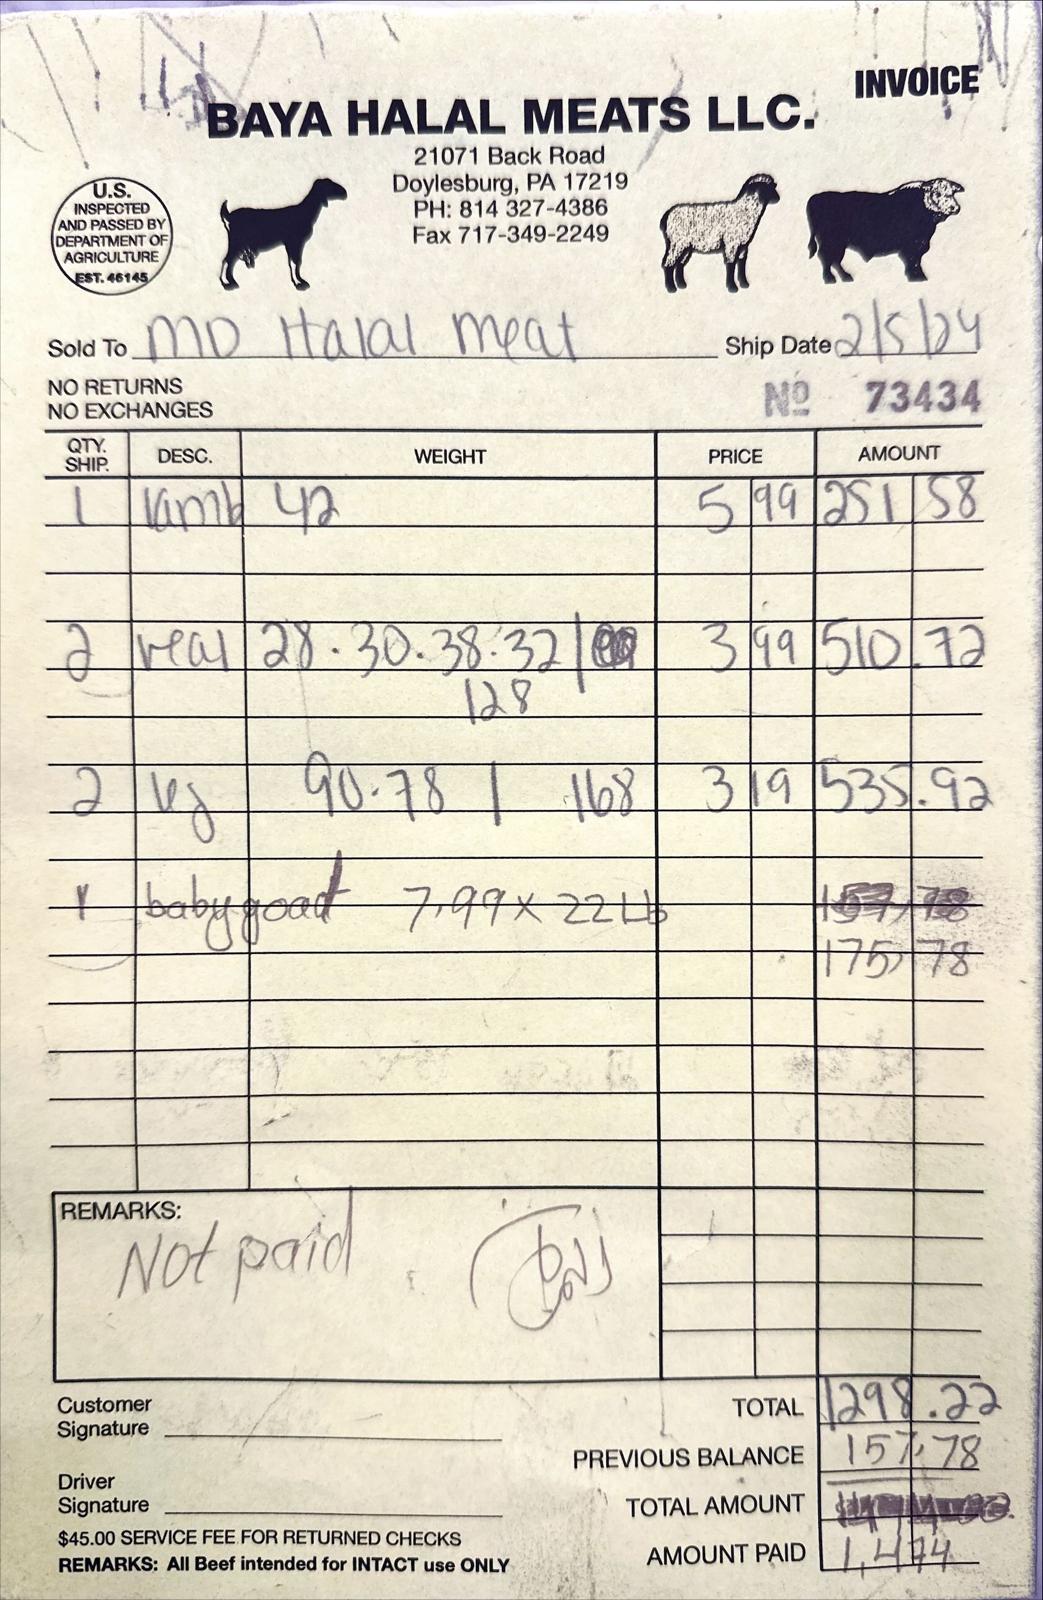 INVOICE
BAYA HALAL MEATS LLC.
21071 Back Road
Doylesburg, PA 17219
PH: 814 327-4386
Fax 717-349-2249
U.S.
INSPECTED
AND PASSED BY
DEPARTMENT OF
AGRICULTURE
EST. 46145
Sold To MD Halal Meat Ship Date 2/5/24
NO RETURNS
NO EXCHANGES
Nº 73434
QTY. SHIP. DESC. WEIGHT PRICE AMOUNT
1 lamb 42 5 99 251 58
2 veal 28.30.38.32 | 3 99 510.72
128
2 90.78 | 168 3 19 535.92
1 baby goat 7.99 x 22 Lb
175, 78
REMARKS:
Not paid
Customer
Signature
Driver
Signature
$45.00 SERVICE FEE FOR RETURNED CHECKS
REMARKS: All Beef intended for INTACT use ONLY
TOTAL 1298.22
PREVIOUS BALANCE 157,78
TOTAL AMOUNT
AMOUNT PAID 1,474